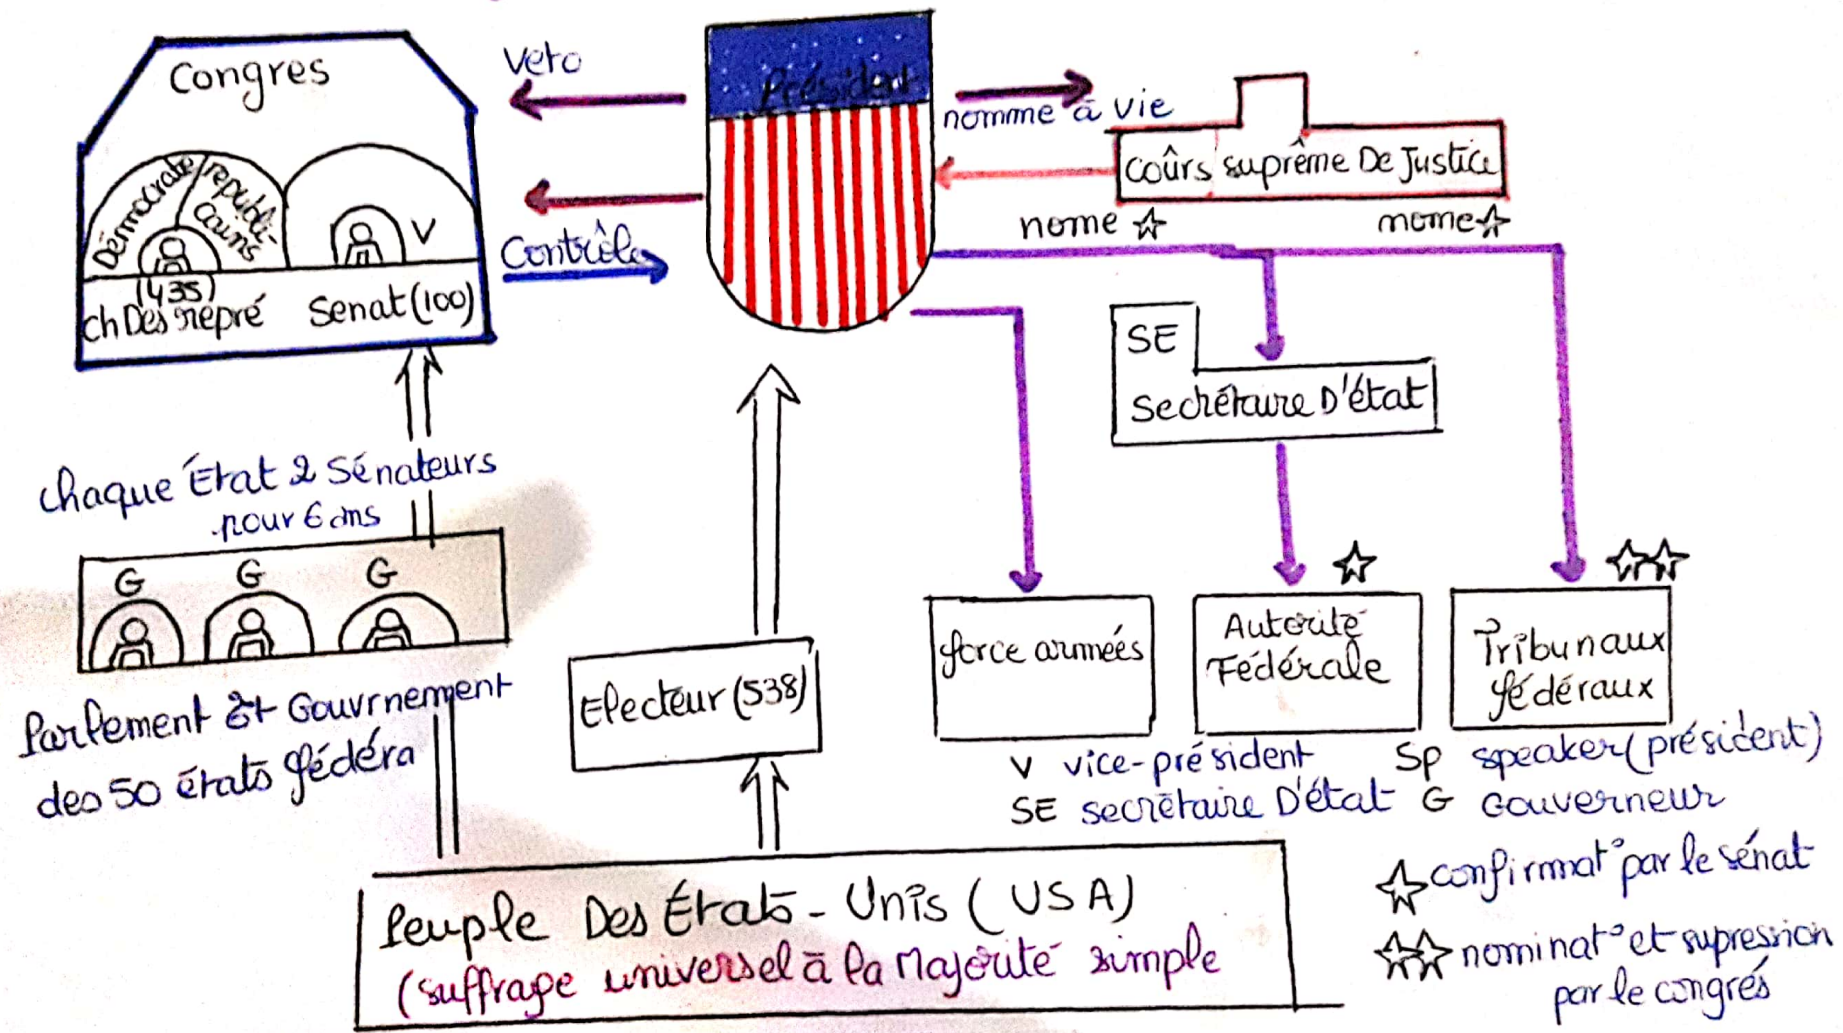 Congres
Veto
Président
nomme à vie
Coûrs suprême De Justice
Démocrate
republi-
cains
V
(435)
ch Des repré
Senat (100)
Contrôle
nome ☆
nome ☆
SE
Secrétaire D'état
chaque État 2 Sénateurs
pour 6 ans
G G G
Parlement Et Gouvrnement
des 50 états fédéra
Electeur (538)
force armées
☆
Autorité
Fédérale
☆☆
Tribunaux
fédéraux
V vice-président
Sp speaker (président)
SE secrétaire D'état
G Gouverneur
☆ confirmat° par le sénat
☆☆ nominat° et supression
par le congrés
Peuple Des États-Unis (USA)
(suffrage universel à la Majorité simple